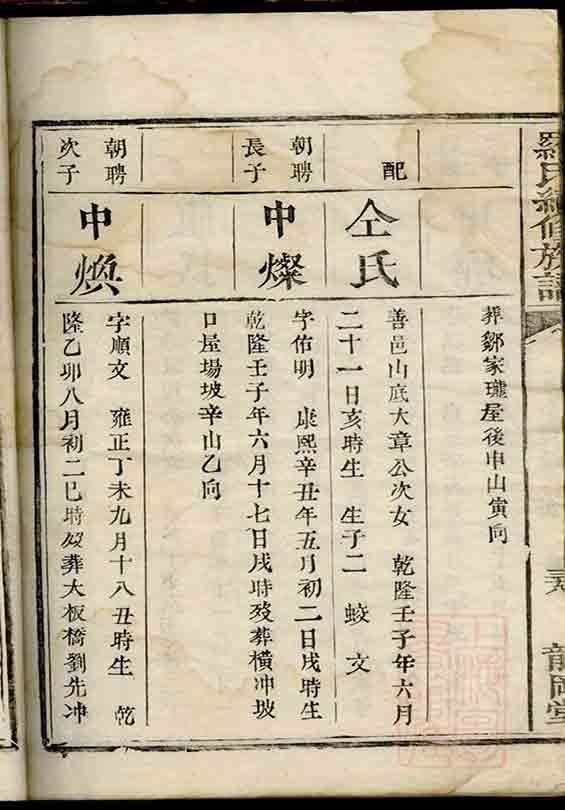 羅氏續修族譜
龍岡堂
葬鄒家瓏屋後申山寅向
配
仝氏
善邑山底大章公次女 乾隆壬子年六月
二十一日亥時生 生子二 蛟 文
朝聘
長子
中燦
字佑明 康熙辛丑年五月初二日戌時生
乾隆壬子年六月十七日戌時歿葬橫冲坡
口屋場坡辛山乙向
朝聘
次子
中煥
字順文 雍正丁未九月十八丑時生 乾
隆乙卯八月初二巳時歿葬大板橋劉先冲